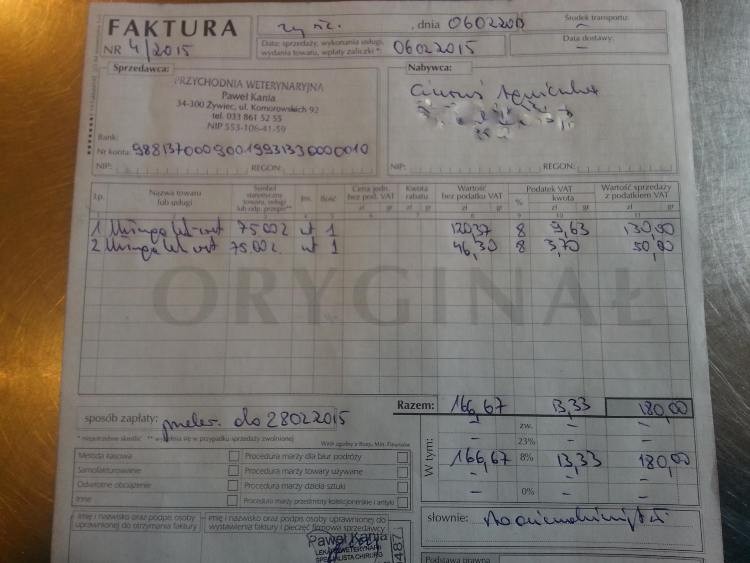 FAKTURA
NR 4/2015
Żywiec, dnia 06022015
Data: sprzedaży, wykonania usługi, wydania towaru, wpłaty zaliczki * 06022015
Środek transportu: –
Data dostawy: –
Sprzedawca:
PRZYCHODNIA WETERYNARYJNA
Paweł Kania
34-300 Żywiec, ul. Komorowskich 92
tel. 033 861 52 55
NIP 553-106-41-59
Bank:
Nr konta:
NIP: REGON:
Nabywca:
NIP: REGON:
Lp. Nazwa towaru lub usługi Symbol statystyczny towaru, usługi lub odp. przepis** Jm. Ilość Cena jedn. bez pod. VAT Kwota rabatu Wartość bez podatku VAT Podatek VAT % kwota Wartość sprzedaży z podatkiem VAT
zł gr zł gr zł gr zł gr zł gr
1 Usługa lek-wet 7500Z 1 120,37 8 9,63 130,00
2 Usługa lek wet 7500Z 1 46,30 8 3,70 50,00
ORYGINAŁ
Razem: 166,67 13,33 180,00
sposób zapłaty: przelew do 28022015
* niepotrzebne skreślić ** wypełnia się w przypadku sprzedaży zwolnionej
W tym:
– zw. – –
– 23% – –
166,67 8% 13,33 180,00
– – –
– 0% – –
Metoda kasowa Procedura marży dla biur podróży
Samofakturowanie Procedura marży towary używane
Odwrotne obciążenie Procedura marży dzieła sztuki
Inne Procedura marży przedmioty kolekcjonerskie i antyki
słownie: sto osiemdziesiąt zł
Imię i nazwisko oraz podpis osoby uprawnionej do otrzymania faktury
Imię i nazwisko oraz podpis osoby uprawnionej do wystawienia faktury i pieczęć firmowa sprzedawcy
Paweł Kania
LEKARZ WETERYNARII
SPECJALISTA CHIRURG
0487
Podstawa prawna